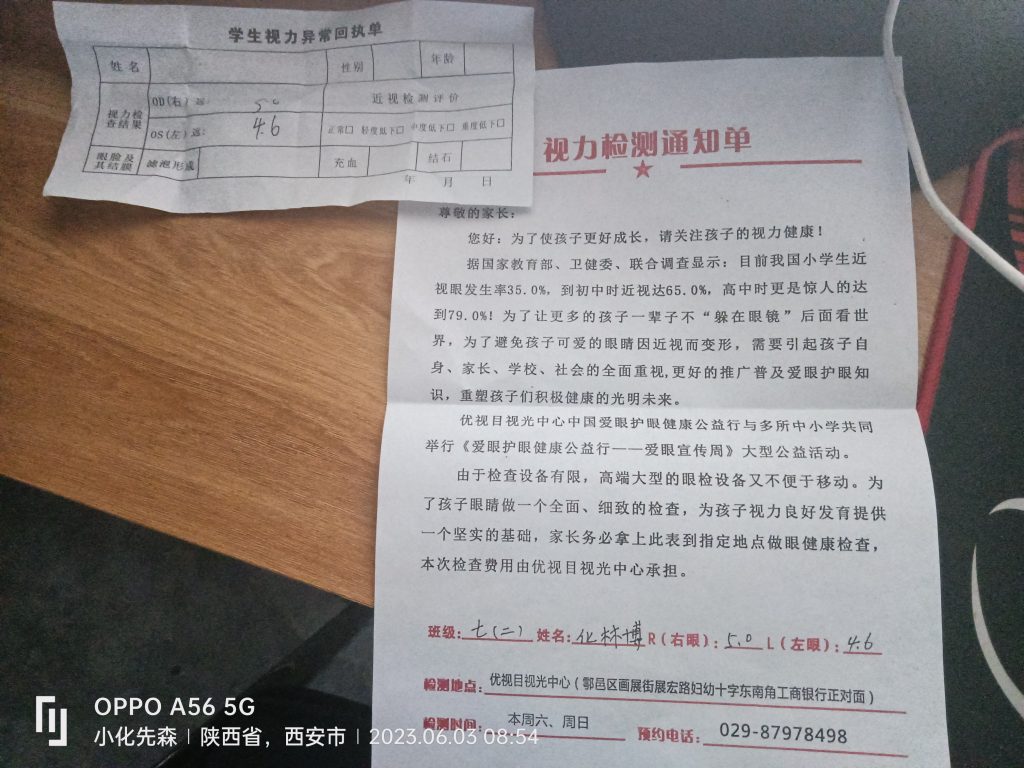 学生视力异常回执单
姓名 性别 年龄
视力检查结果 OD(右)远: 5.0 近视检测评价
OS(左)远: 4.6 正常□ 轻度低下□ 中度低下□ 重度低下□
眼脸及其结膜 滤泡形成 充血 结石
年 月 日
视力检测通知单
尊敬的家长:
您好:为了使孩子更好成长,请关注孩子的视力健康!
据国家教育部、卫健委、联合调查显示:目前我国小学生近
视眼发生率35.0%,到初中时近视达65.0%,高中时更是惊人的达
到79.0%!为了让更多的孩子一辈子不“躲在眼镜”后面看世
界,为了避免孩子可爱的眼睛因近视而变形,需要引起孩子自
身、家长、学校、社会的全面重视,更好的推广普及爱眼护眼知
识,重塑孩子们积极健康的光明未来。
优视目视光中心中国爱眼护眼健康公益行与多所中小学共同
举行《爱眼护眼健康公益行——爱眼宣传周》大型公益活动。
由于检查设备有限,高端大型的眼检设备又不便于移动。为
了孩子眼睛做一个全面、细致的检查,为孩子视力良好发育提供
一个坚实的基础,家长务必拿上此表到指定地点做眼健康检查,
本次检查费用由优视目视光中心承担。
班级:七(二) 姓名:化林博 R(右眼):5.0 L(左眼):4.6
检测地点:优视目视光中心(鄠邑区画展街展宏路妇幼十字东南角工商银行正对面)
检测时间: 本周六、周日 预约电话: 029-87978498
OPPO A56 5G
小化先森 | 陕西省,西安市 | 2023.06.03 08:54